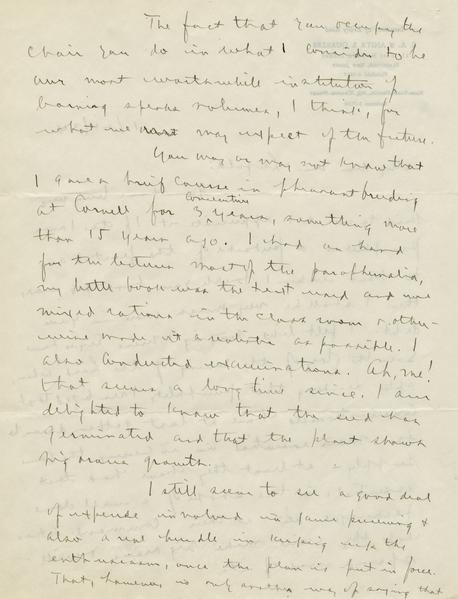 The fact that you occupy the
chair you do in what I consider to be
our most worthwhile institution of
learning speaks volumes, I think, for
what we may expect of the future.
You may or may not know that
I gave a brief course in pheasant breeding
at Cornell for 3 consecutive years, something more
than 15 years ago. I had on hand
for the lectures most of the paraphernalia,
my little book was the text used and we
mixed rations in the class room & other-
wise made it as realistic as possible. I
also conducted examinations. Ah, me!
that seems a long time since. I am
delighted to know that the seed has
germinated and that the plant shows
vigorous growth.
I still seem to see a good deal
of expense involved in game &
also a real hurdle in keeping up the
enthusiasm, once the plan is put in force.
That, however is only another way of saying that